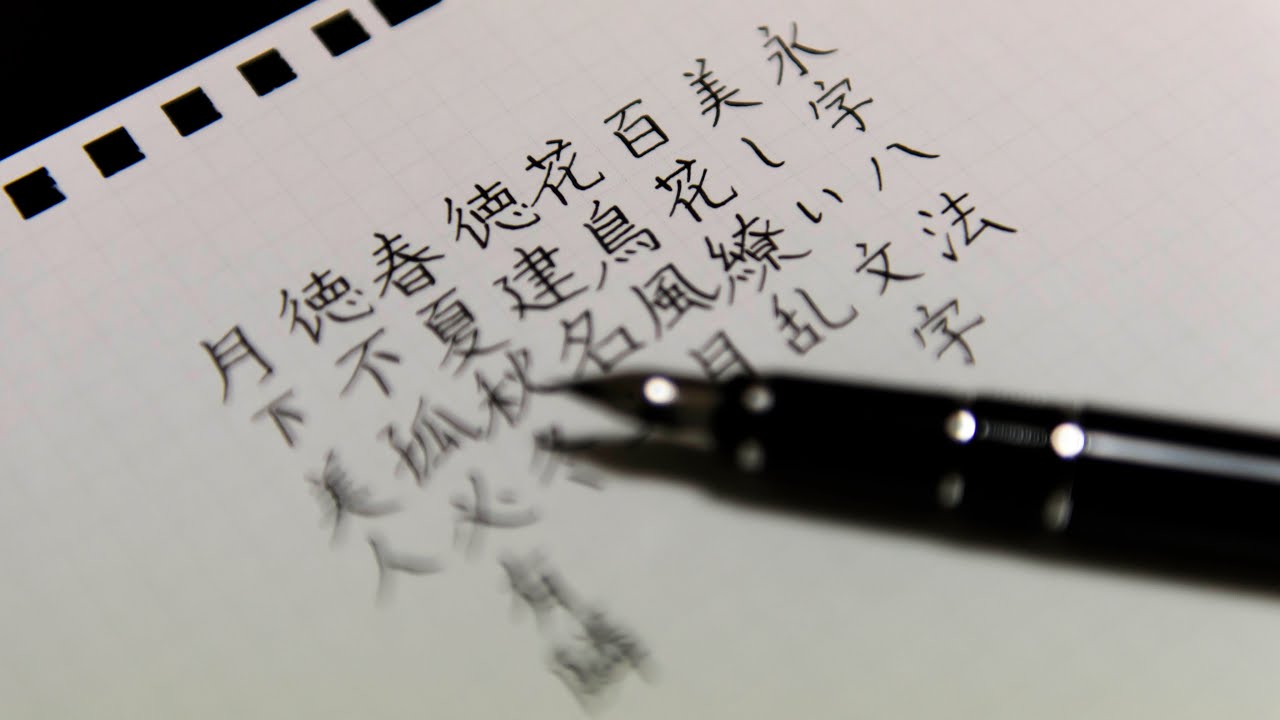 永字八法
美しい文字
百花繚乱
花鳥風月
徳建名
春夏秋冬
徳不孤必有
月下美人